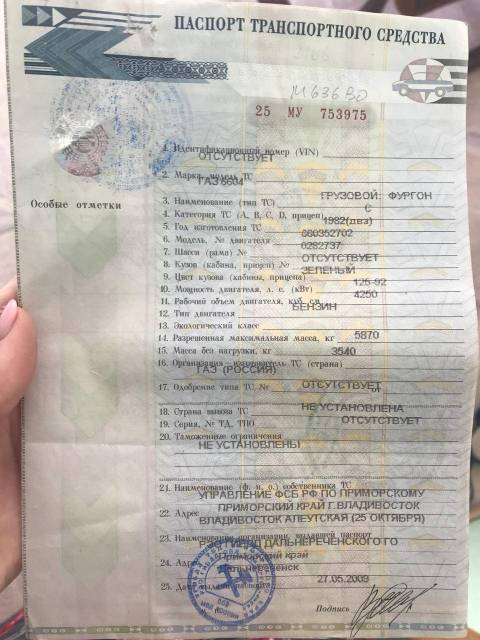 ПАСПОРТ ТРАНСПОРТНОГО СРЕДСТВА
М636ВО
25 МУ 753975
Особые отметки
1. Идентификационный номер (VIN)
ОТСУТСТВУЕТ
2. Марка, модель ТС
ГАЗ 6604
3. Наименование (тип ТС) ГРУЗОВОЙ: ФУРГОН
4. Категория ТС (A, B, C, D, прицеп) C
5. Год изготовления ТС 1982(два)
6. Модель, № двигателя 660352702
7. Шасси (рама) № 0282737
8. Кузов (кабина, прицеп) № ОТСУТСТВУЕТ
9. Цвет кузова (кабины, прицепа) ЗЕЛЕНЫЙ
10. Мощность двигателя, л. с. (кВт) 125-92
11. Рабочий объем двигателя, куб. см 4250
12. Тип двигателя БЕНЗИН
13. Экологический класс
14. Разрешенная максимальная масса, кг 5870
15. Масса без нагрузки, кг 3540
16. Организация-изготовитель ТС (страна)
ГАЗ (РОССИЯ)
17. Одобрение типа ТС № ОТСУТСТВУЕТ
18. Страна вывоза ТС НЕ УСТАНОВЛЕНА
19. Серия, № ТД, ТПО ОТСУТСТВУЕТ
20. Таможенные ограничения
НЕ УСТАНОВЛЕНЫ
21. Наименование (ф. и. о.) собственника ТС
УПРАВЛЕНИЕ ФСБ РФ ПО ПРИМОРСКОМУ
22. Адрес ПРИМОРСКИЙ КРАЙ Г.ВЛАДИВОСТОК
ВЛАДИВОСТОК АЛЕУТСКАЯ (25 ОКТЯБРЯ)
23. Наименование организации, выдавшей паспорт
ДАЛЬНЕРЕЧЕНСКОГО ГО
24. Адрес Приморский край
Дальнереченск
25. Дата выдачи паспорта 27.05.2009
Подпись